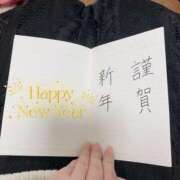 Happy
New Year
謹賀
新年